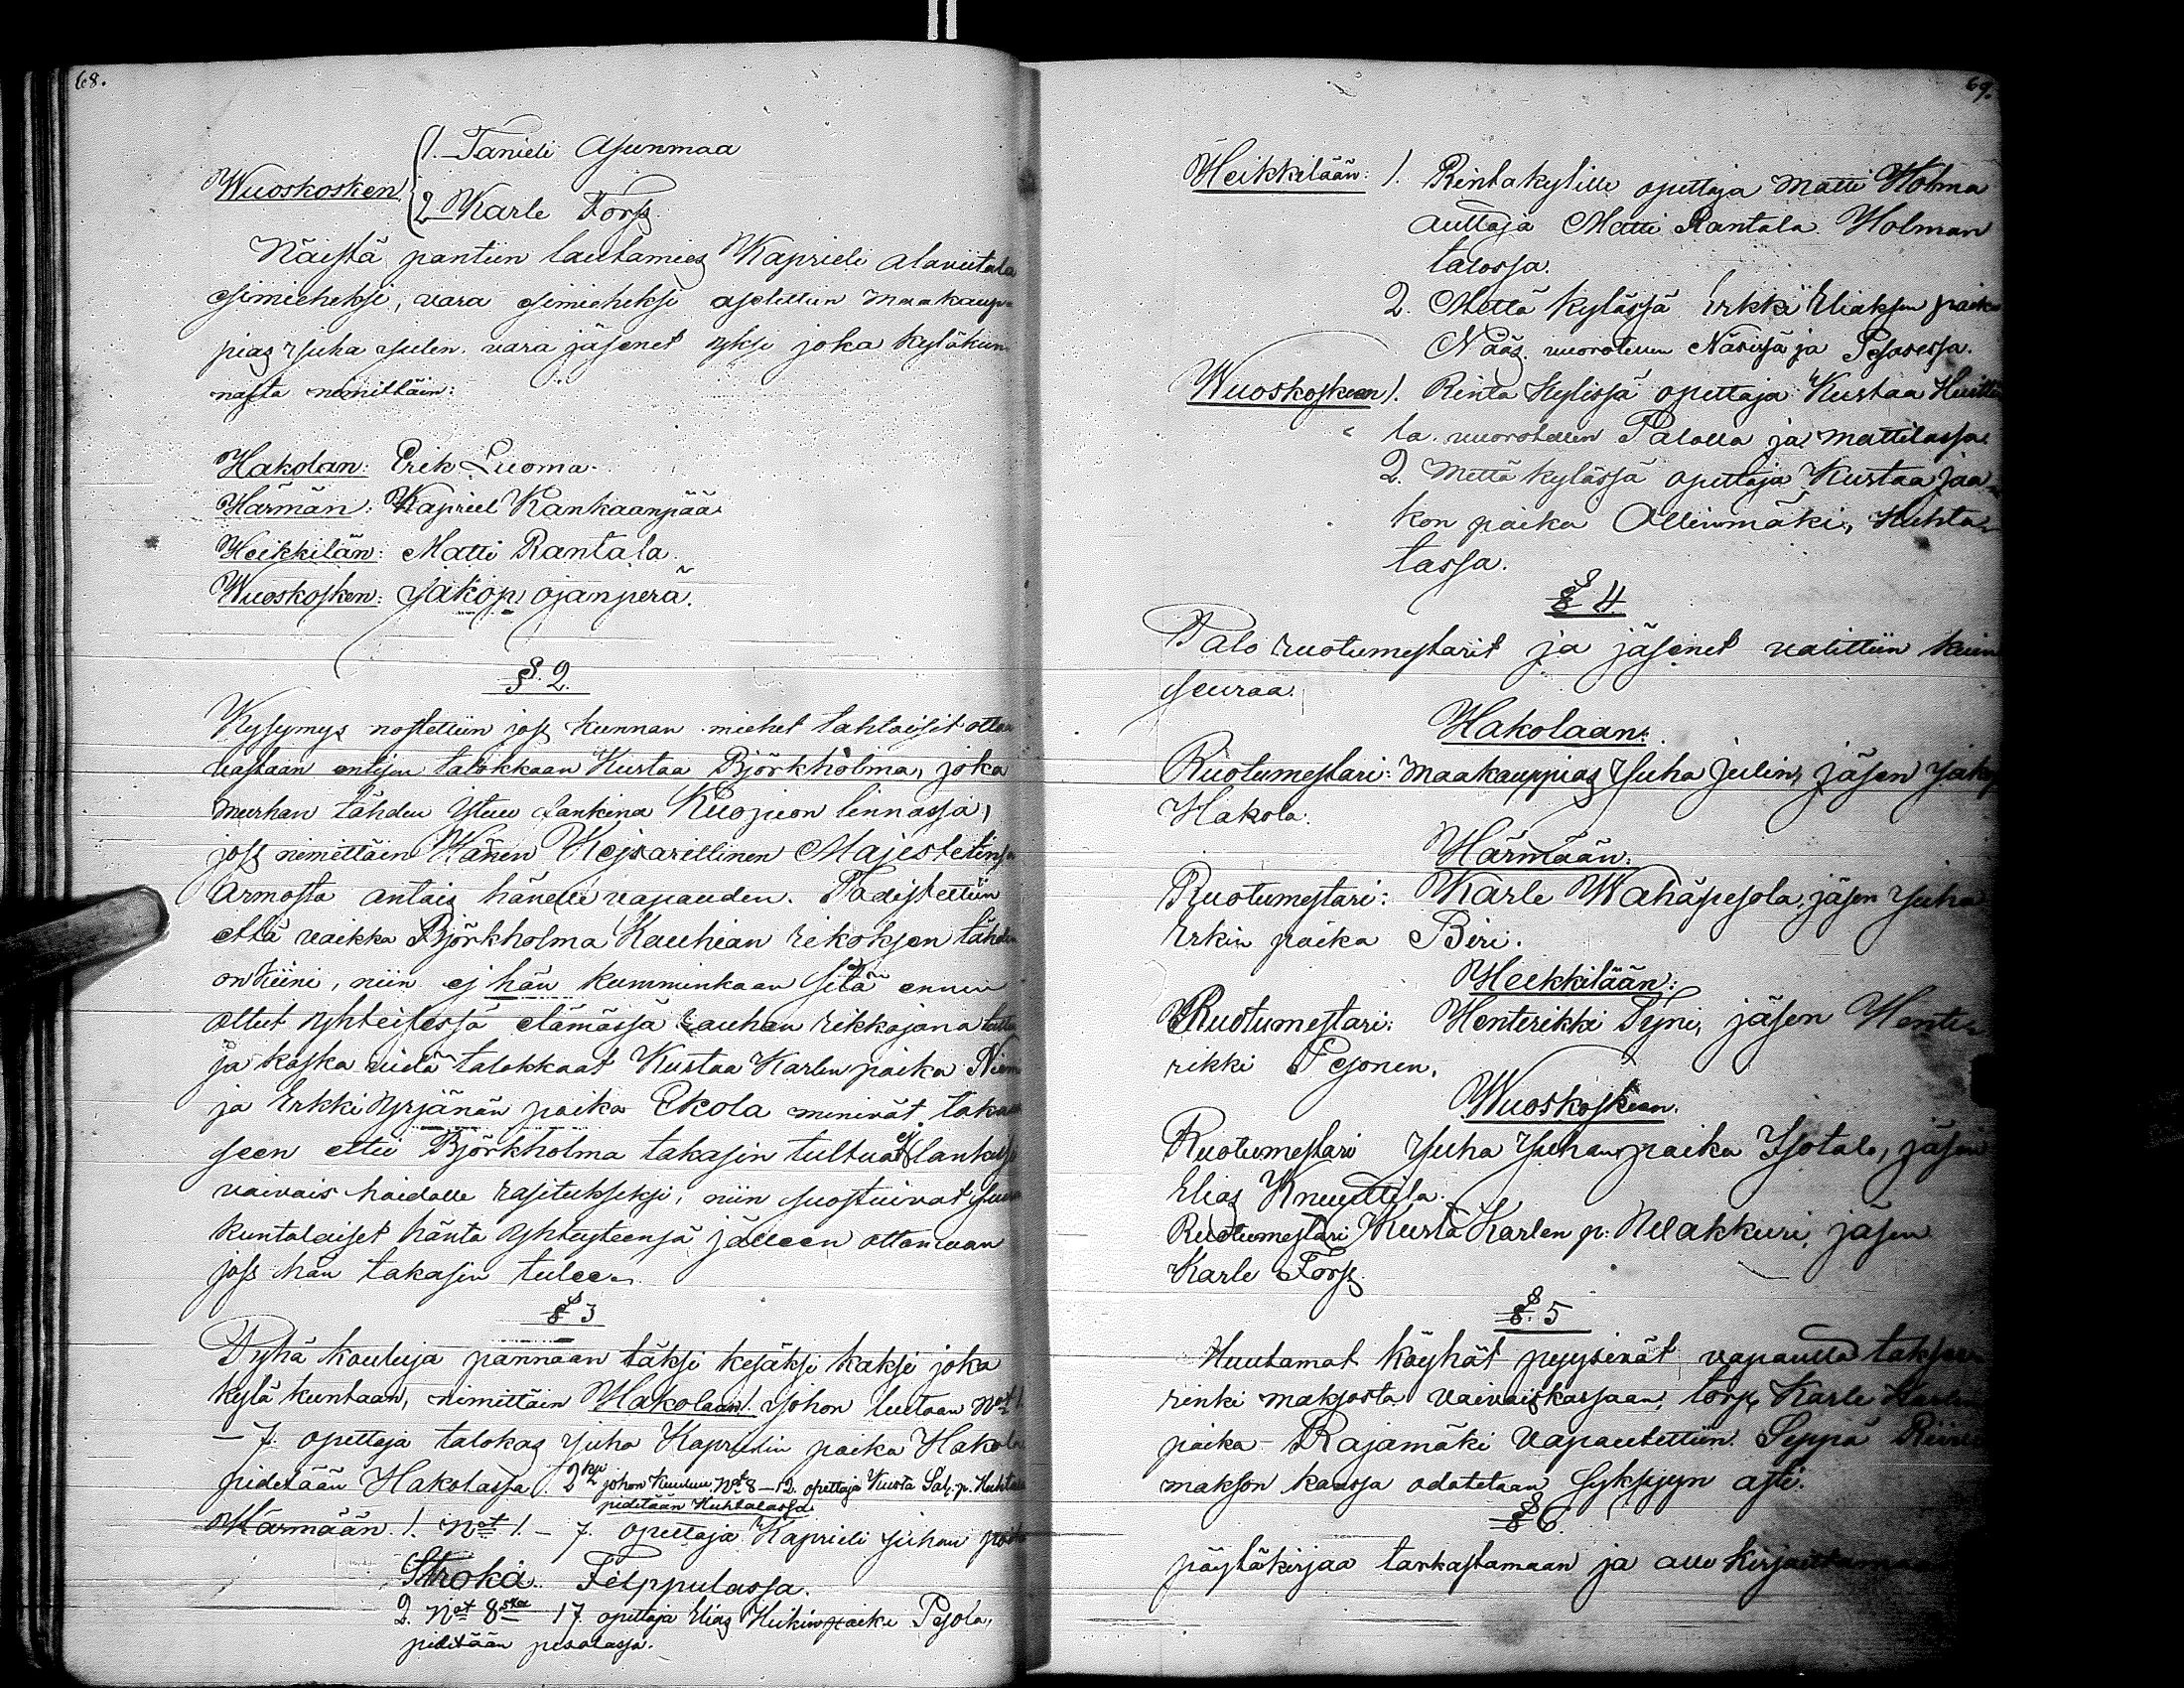 68.
1. Tanieli Asunmaa
Wuoskosken
2 Karle Forss
Näistä pantiin lautamies Kaprieli Alaviitala
esimieheksi, vara esimieheksi asetettiin maakaup-
pias Juha Julin. vara jäsenet yksi joka kyläkun-
nasta nimittäin:
Hakolan: Erik Luoma.
Härmän: Kapriel Kankaanpää
Heikkilän: Matti Rantala.
Wuoskosken: Jakop Ojanperä.
§ 2.
Kysymys nostettiin joss kunnan miehet tahtoisit ottaa
vastaan entisen talokkaan Kustaa Björkholma, joka
murhan tähden istuu fankina Kuopion linnassa,
joss nimittäin Hänen Kejsarillinen Majestetinsa
armosta antais hänelle vapauden. Todistettiin
että vaikka Björkholma Kauhian rikoksen tähden
on kiini, niin ej hän kumminkaan sitä ennen
ollut yhteisessä elämässä rauhan rikkojana
ja koska vielä talokkaat Kustaa Karlen poika
ja Erkki Yrjänän poika Ekola menivät
seen ettei Björkholma takasin tultua ej lankeisi
vaivais hoidolle rasitukseksi, niin suostuivat
kuntalaiset häntä yhteyteensä jälleen ottamaan
joss hän takasin tulee.
§ 3
Pyhä kouluja pannaan täksi kesäksi kaksi joka
kylä kuntaan, nimittäin Hakolaan 1. johon luetaan Not 1.
– 7. opettaja talokas Juha Kaprielin poika Hakola
pidetään Hakolassa. 2ksi johon kuuluu Not 8–12. opettaja Kusta Sal. p. Huhtala
pidetään Huhtalassa
Härmään. 1. Not 1. – 7. opettaja Kaprieli Juhan poika
Stroka. Filppulassa.
2. Not 8ska 17 opettaja Elias Heikin poika Pesola,
pidetään pesolassa.
69.
Heikkilään: 1. Rintakylille opettaja Matti Holma
auttaja Matti Rantala Holman
talossa.
2. Mettä kylässä Erkki Eliaksen poika
Nääs vuorotellen Näsissä ja Pesosessa.
Wuoskoskeen 1. Rinta Kylissä opettaja Kustaa
la. vuorotellen Palolla ja Mattilassa
2. Mettä kylässä opettaja Kustaa Jaa-
kon poika Ollinmäki, Huhta-
lassa.
§ 4
Palo ruotumestarit ja jäsenet valittiin kuin
seuraa.
Hakolaan:
Ruotumestari: Maakauppias Juha Julin, jäsen Jakop
Hakola.
Härmään:
Ruotumestari: Karle Wähäpesola, jäsen Juha
Erkin poika Biri.
Heikkilään:
Ruotumestari: Henterikki Tyni, jäsen Hente-
rikki Pesonen.
Wuoskoskeen.
Ruotumestari Juha Juhan poika Isotalo, jäsen
Elias Knuuttila.
Ruotumestari Kusta Karlen p: Mlakkuri, jäsen
Karle Forss.
§ 5
Muutamat köyhät pyysivät vapautta
rinki maksosta vaivaiskassaan, torp, Karle
poika Rajamäki Vapautettiin. Seppä
makson kanssa odotetaan syksyyn asti.
§ 6.
pöytäkirjaa tarkastamaan ja alle kirjoittamaan